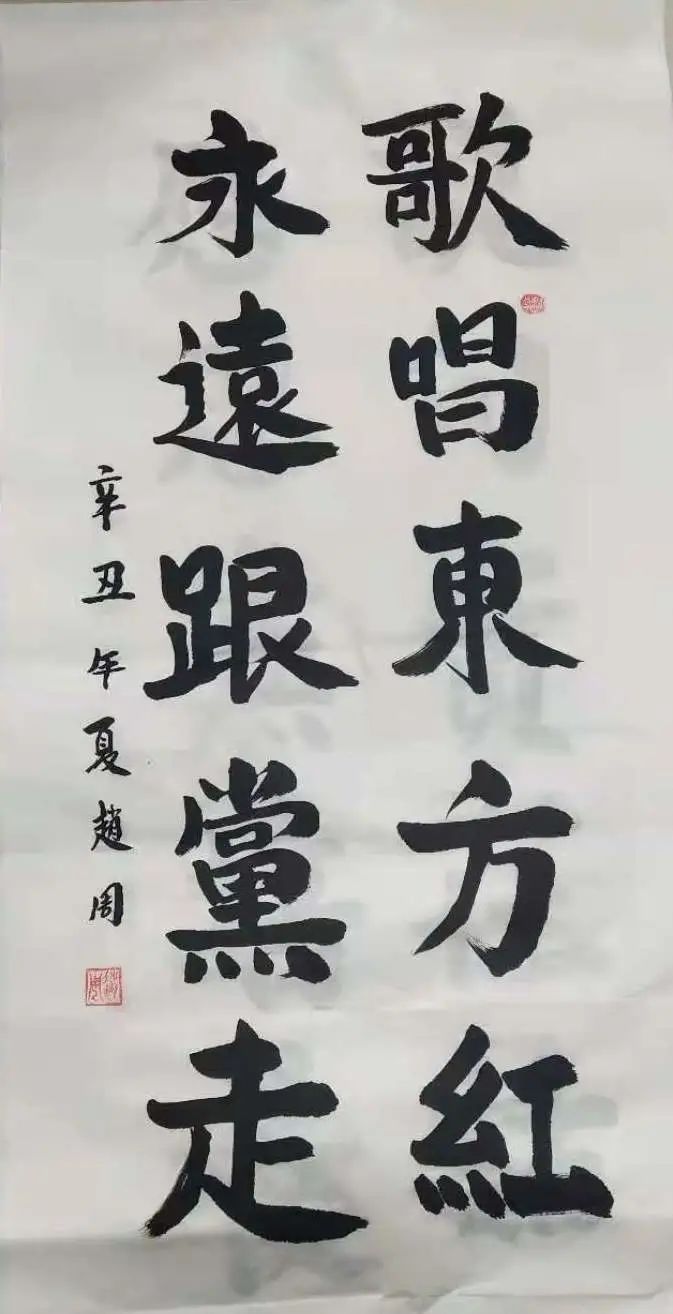 歌唱東方紅
永遠跟黨走
辛丑年夏趙周